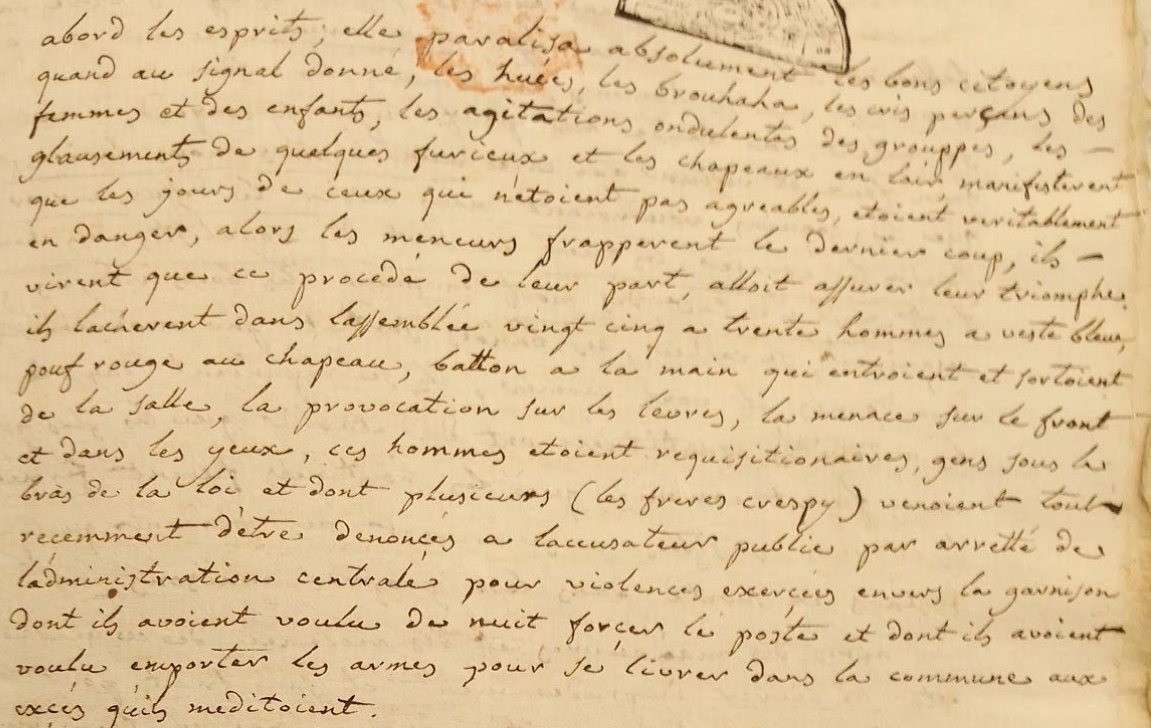 abord les esprits; elle paralisa absolument les bons citoyens
quand au signal donné, les huées, les brouhaha, les cris perçans des
femmes et des enfants, les agitations ondulentes des grouppes, les —
glausements de quelques furieux et les chapeaux en lair, manifesterent
que les jours de ceux qui n'etoient pas agreables, etoient veritablement
en danger, alors les meneurs frapperent le dernier coup, ils —
virent que ce procedé de leur part, alloit assurer leur triomphe,
ils lacherent dans lassemblée vingt cinq a trente hommes a veste bleue,
pouf rouge au chapeau, batton a la main qui entroient et sortoient
de la salle, la provocation sur les levres, la menace sur le front
et dans les yeux, ces hommes etoient requisitionaires, gens sous le
bras de la loi et dont plusieurs (les freres crespy) venoient tout
recemment d'être denoncés a laccusateur public par arretté de
ladministration centrale pour violences exercées envers la garnison
dont ils avoient voulu de nuit forcer le poste et dont ils avoient
voulu emporter les armes pour se livrer dans la commune aux
excés quils meditoient.